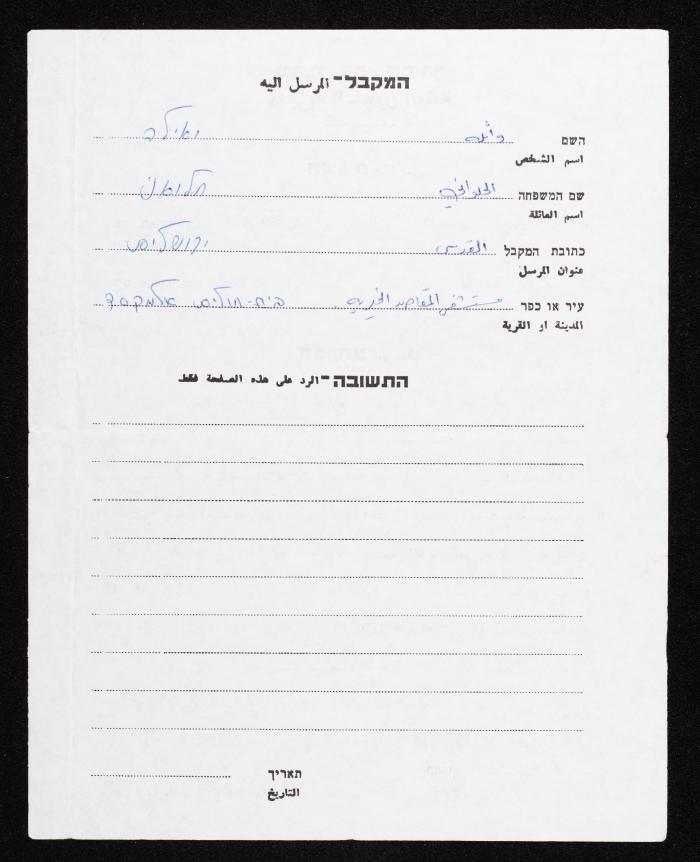 המקבל - المرسل اليه
השם وائله ואילה
اسم الشخص
שם המשפחה الحلواني חלואני
اسم العائلة
כתובת המקבל القدس ירושלים
عنوان المرسل
עיר או כפר مستشفى المقاصد الخيريه בית-חולים אלמקסד
المدينة او القرية
התשובה - الرد على هذه الصفحة فقط
תאריך
التاريخ